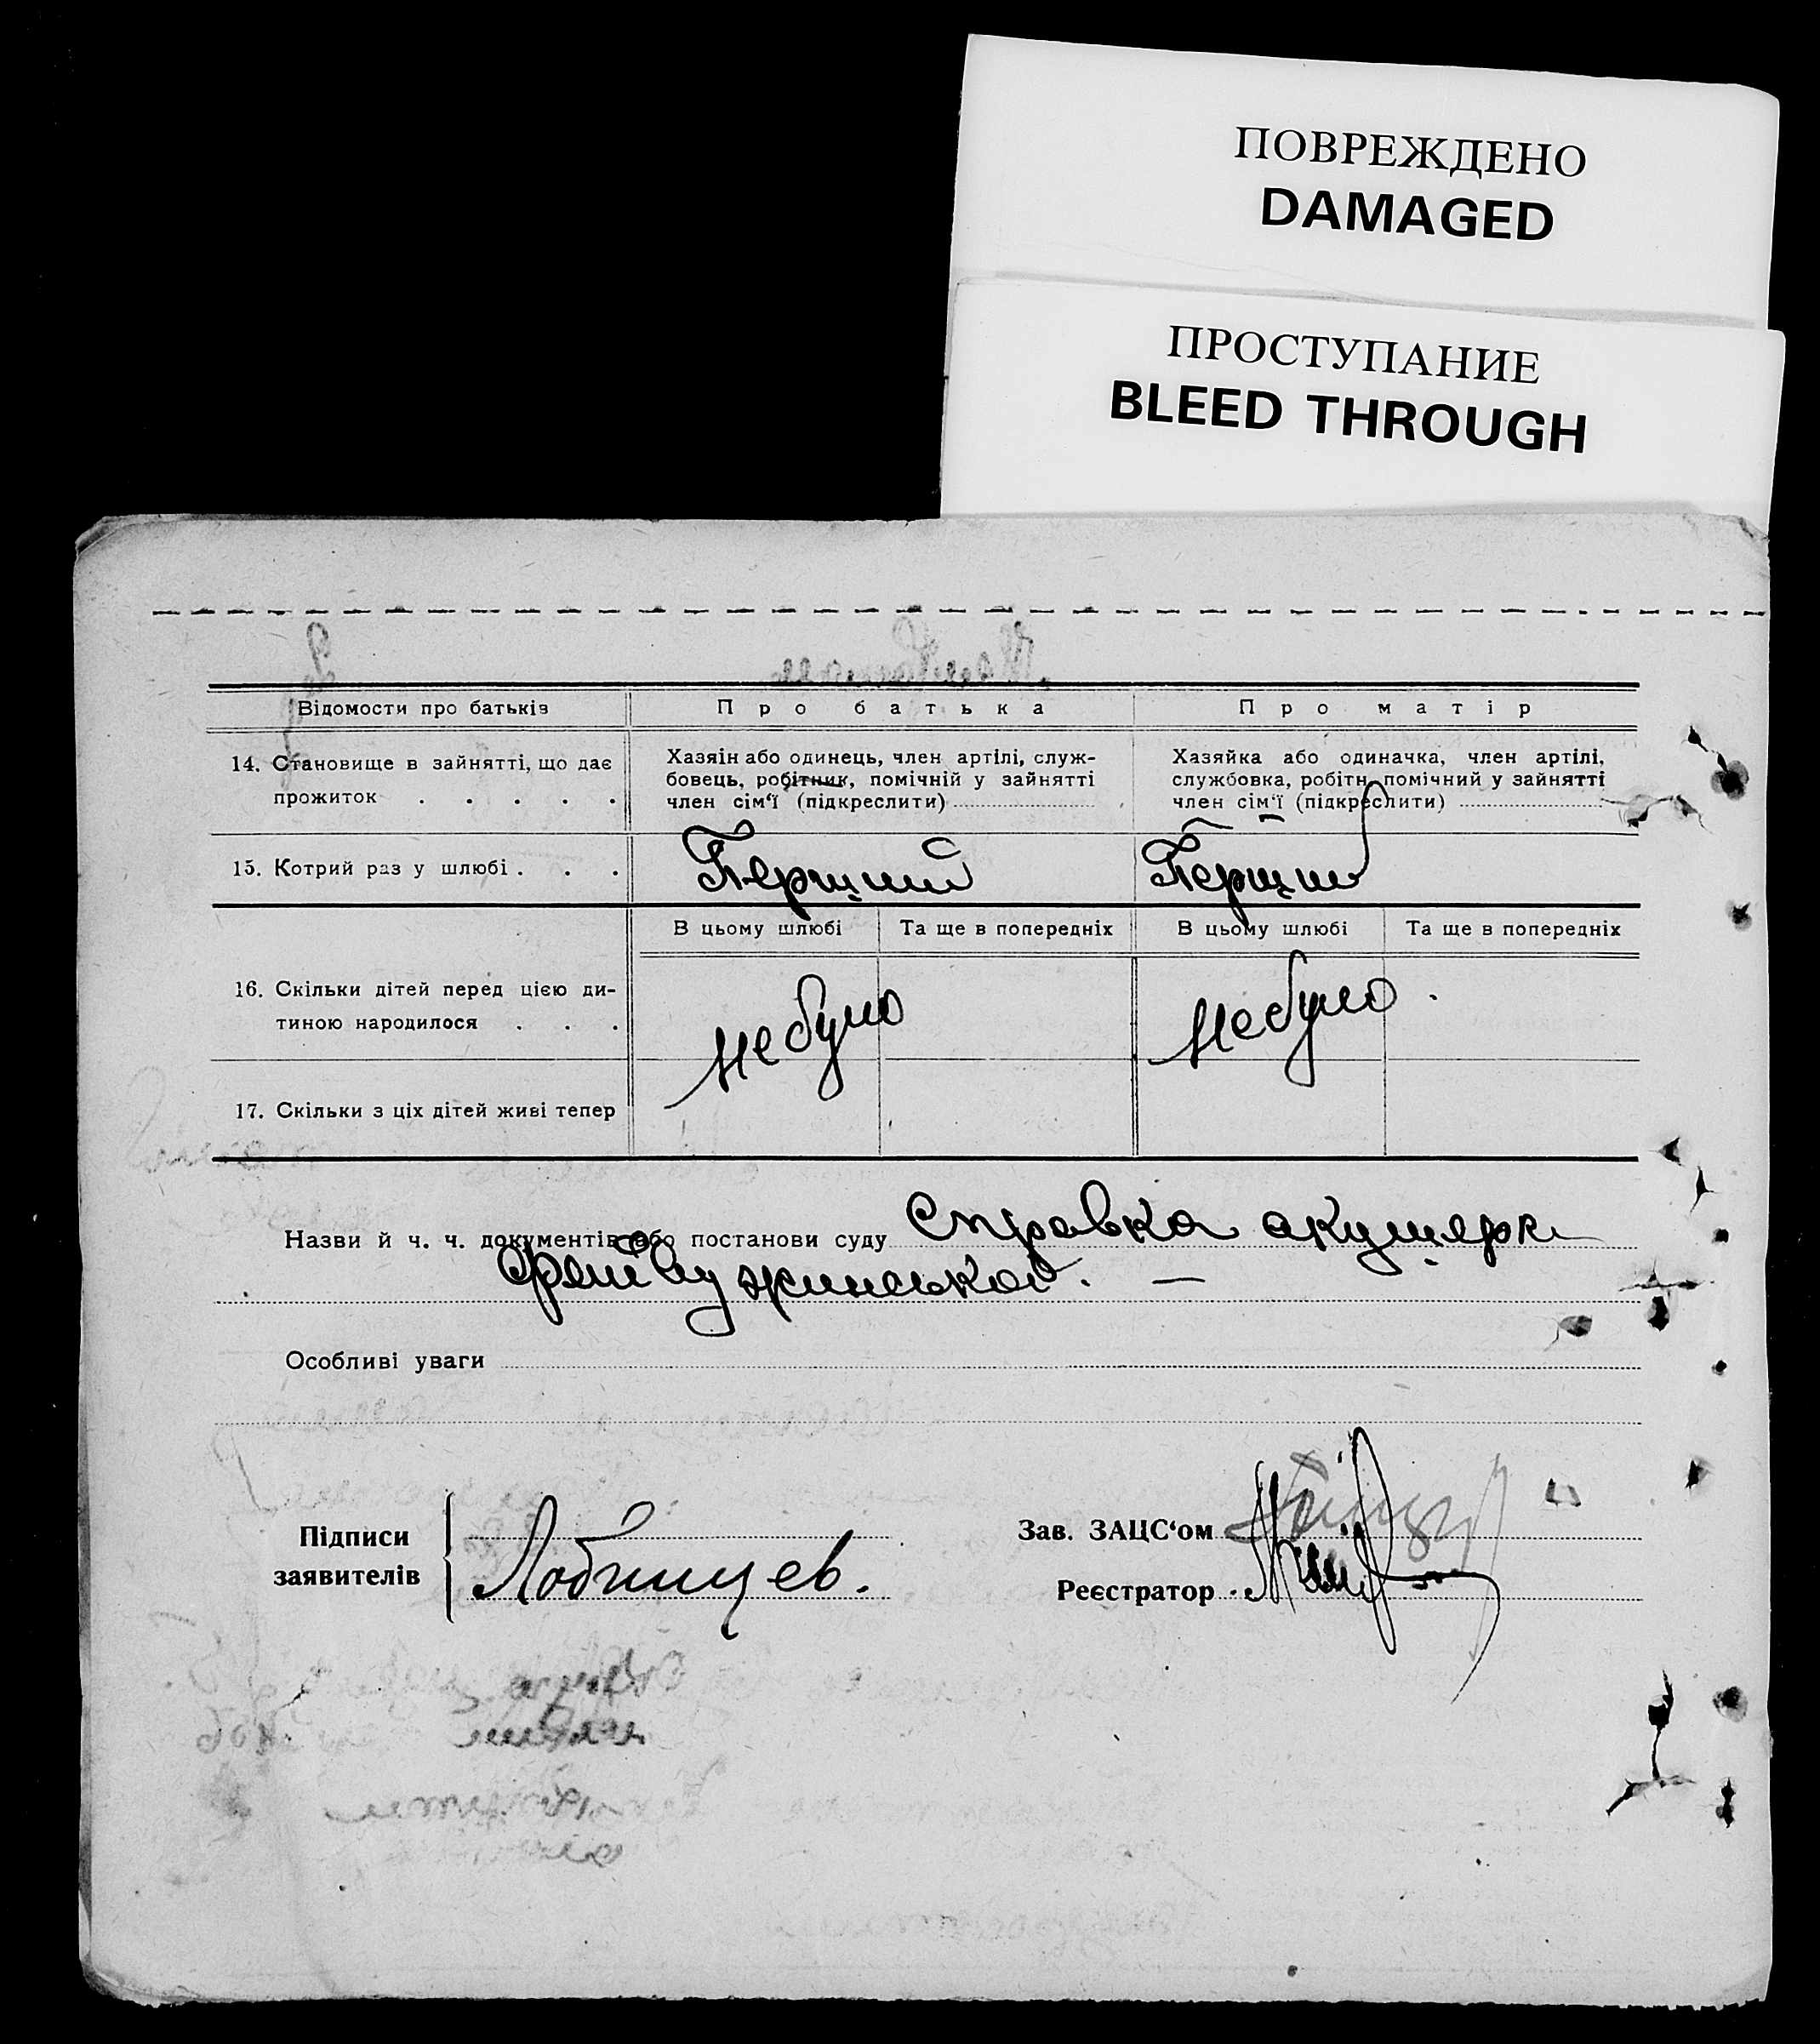 ПОВРЕЖДЕНО
DAMAGED
ПРОСТУПАНИЕ
BLEED THROUGH
Відомости про батьків
Про батька
Про матір
14. Становище в зайнятті, що дає
прожиток . . . . .
Хазяін або одинець, член артілі, служ-
бовець, робітник, помічній у зайнятті
член сім'ї (підкреслити)
Хазяйка або одиначка, член артілі,
службовка, робітн. помічний у зайнятті
член сім'ї (підкреслити)
15. Котрий раз у шлюбі . . .
Перший
Перший
В цьому шлюбі
Та ще в попередніх
В цьому шлюбі
Та ще в попередніх
16. Скільки дітей перед цією ди-
тиною народилося . . .
не було
не було.
17. Скільки з ціх дітей живі тепер
Назви й ч. ч. документів або постанови суду Справка акушерки
Особливі уваги
Підписи
заявителів
Зав. ЗАЦС'ом
Реєстратор